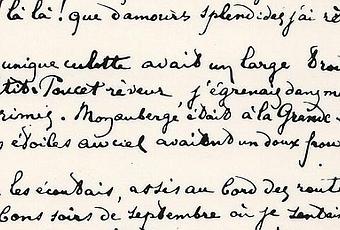 là là ! que d'amours splendides j'ai rê
unique culotte avait un large trou
tit-Poucet rêveur j'égrenais dans m
rimes. Mon auberge était à la Grande-
s étoiles au ciel avaient un doux frou
les écoutais, assis au bord des route
bons soirs de septembre où je sentais